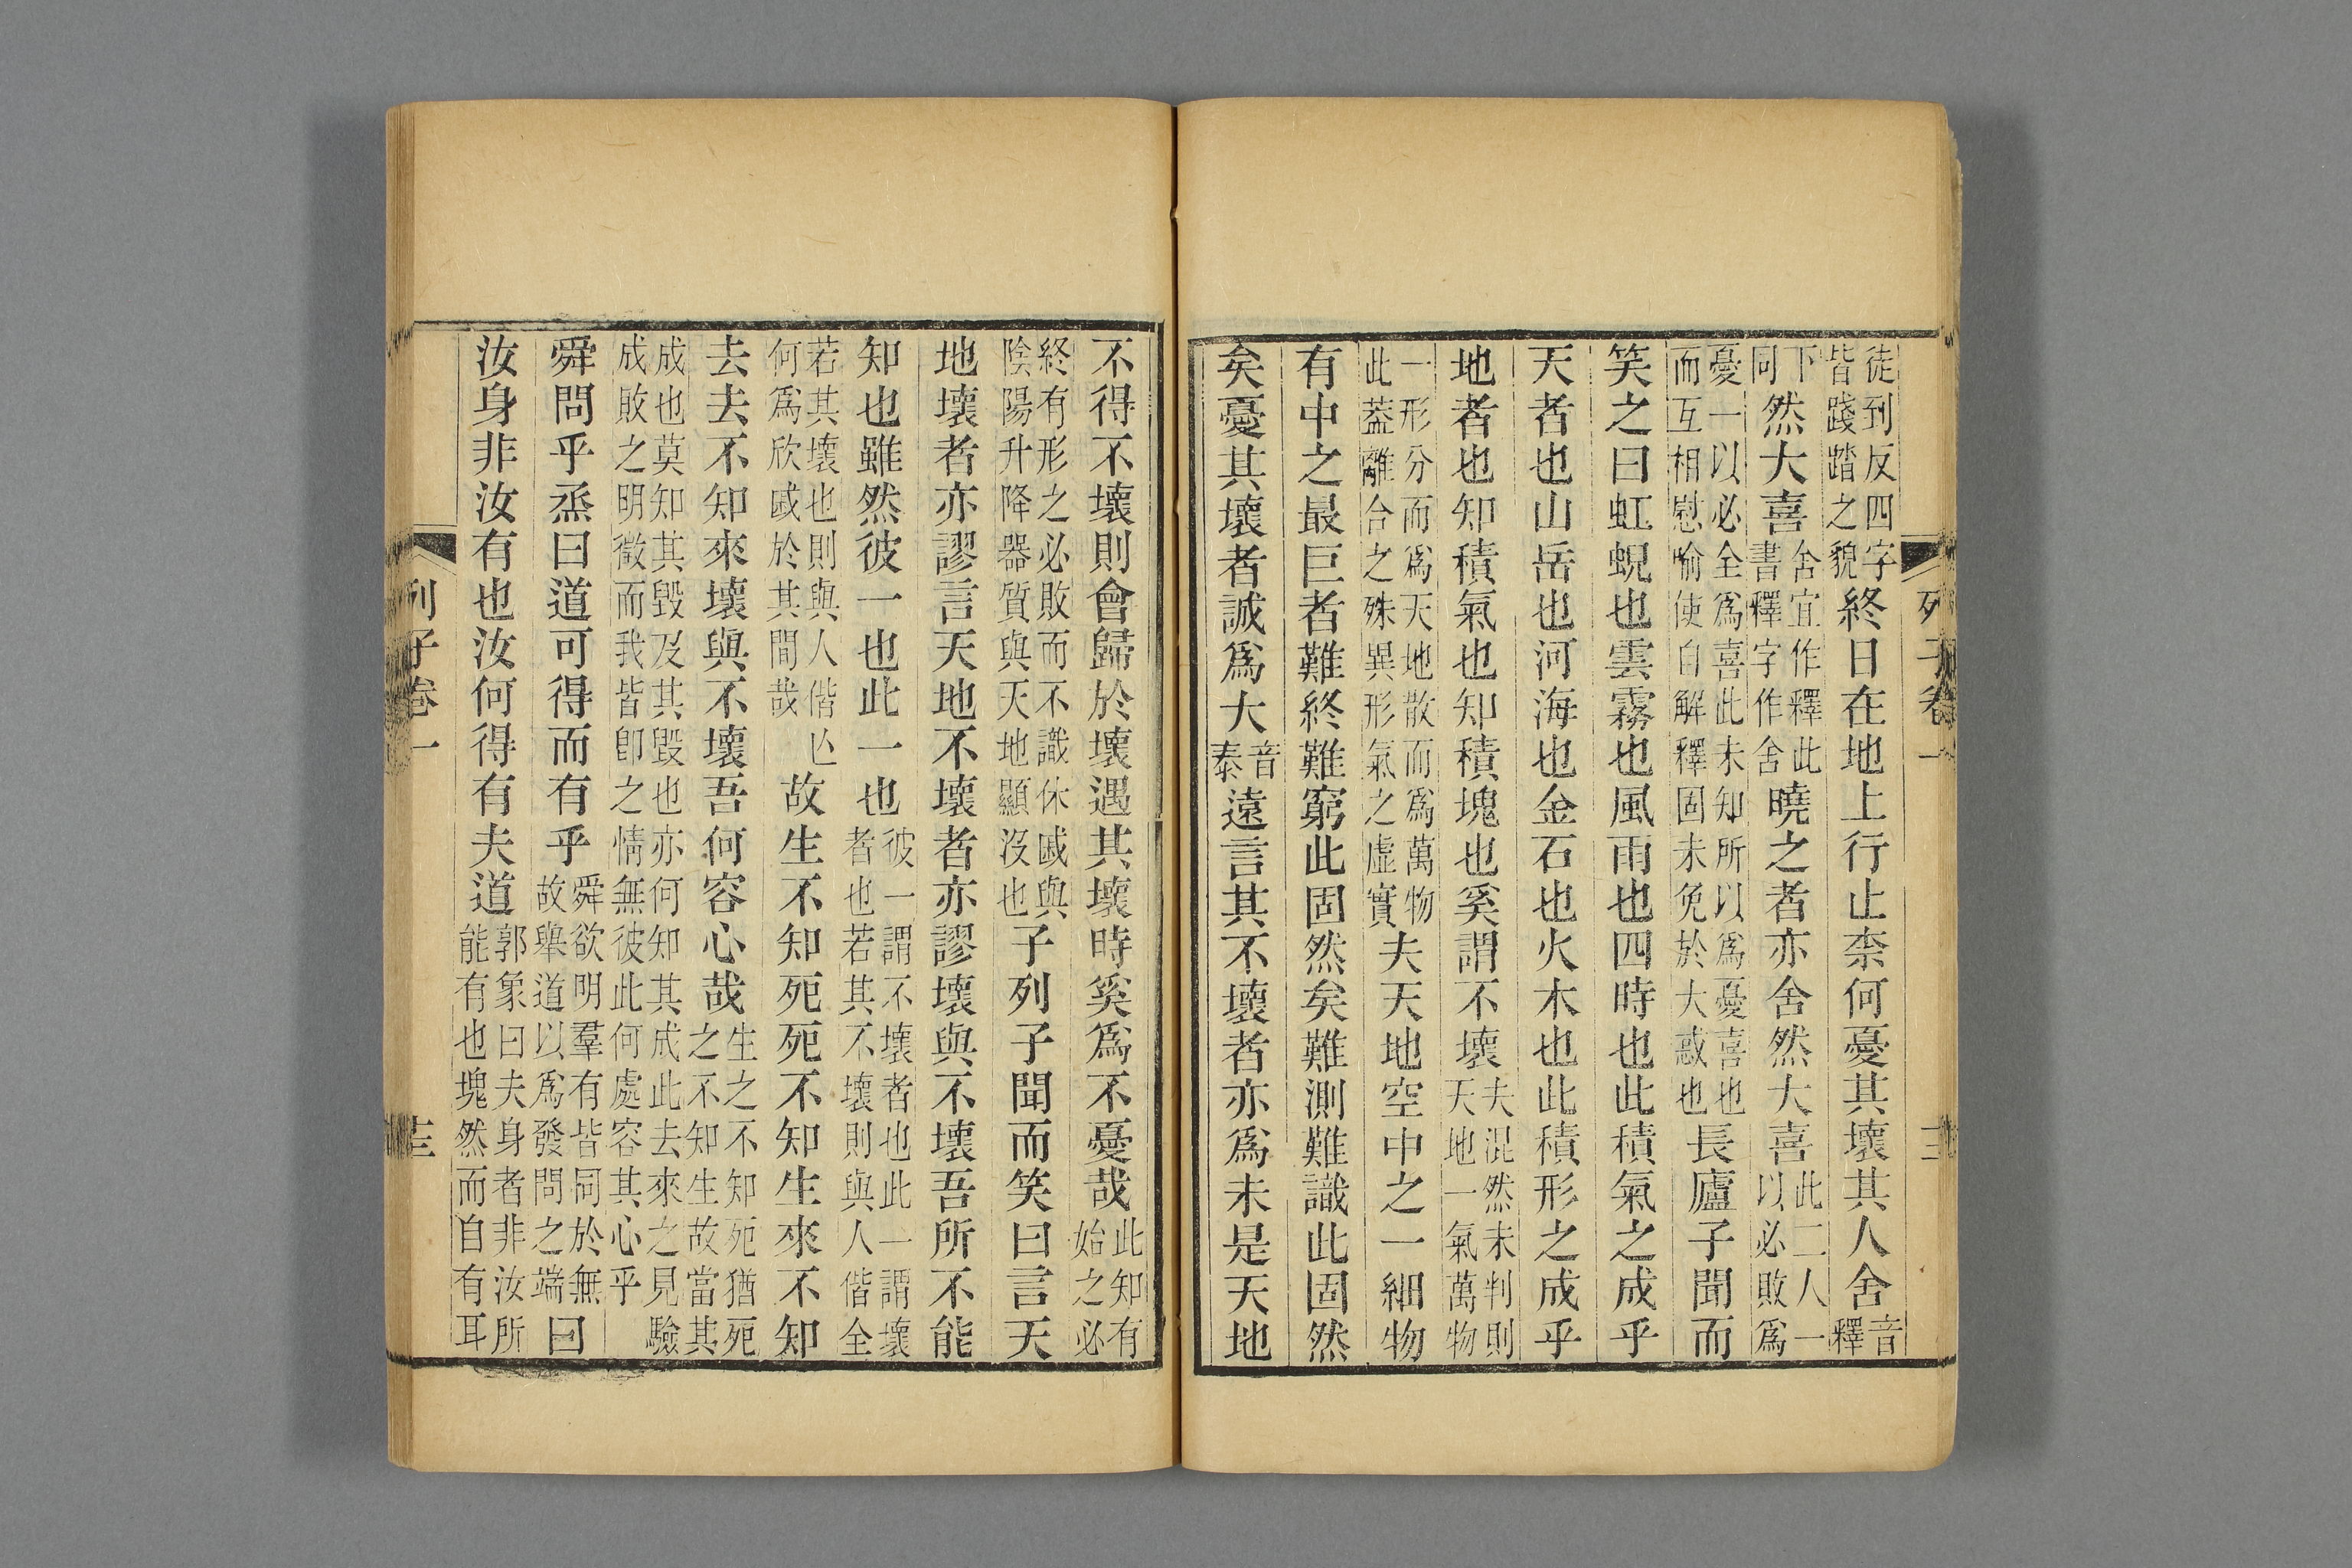 列子卷一
十三
徒到反四字皆踐踏之貌終日在地上行止柰何憂其壞其人舍音釋
下同然大喜舍宜作釋此書釋字作舍曉之者亦舍然大喜此二人一以必敗爲
憂一以必全爲喜此未知所以爲憂喜也而互相慰喻使自解釋固未免於大惑也長廬子聞而
笑之曰虹蜺也雲霧也風雨也四時也此積氣之成乎
天者也山岳也河海也金石也火木也此積形之成乎
地者也知積氣也知積塊也奚謂不壞夫混然未判則天地一氣萬物
一形分而爲天地散而爲萬物此葢離合之殊異形氣之虛實夫天地空中之一細物
有中之最巨者難終難窮此固然矣難測難識此固然
矣憂其壞者誠爲大音泰遠言其不壞者亦爲未是天地
不得不壞則會歸於壞遇其壞時奚爲不憂哉此知有始之必
終有形之必敗而不識休戚與陰陽升降器質與天地顯沒也子列子聞而笑曰言天
地壞者亦謬言天地不壞者亦謬壞與不壞吾所不能
知也雖然彼一也此一也彼一謂不壞者也此一謂壞者也若其不壞則與人偕全
若其壞也則與人偕亾何爲欣戚於其間哉故生不知死死不知生來不知
去去不知來壞與不壞吾何容心哉生之不知死猶死之不知生故當其
成也莫知其毀及其毀也亦何知其成此去來之見驗成敗之明徵而我皆卽之情無彼此何處容其心乎
舜問乎烝曰道可得而有乎舜欲明羣有皆同於無故舉道以爲發問之端曰
汝身非汝有也汝何得有夫道郭象曰夫身者非汝所能有也塊然而自有耳
列子卷一
十三